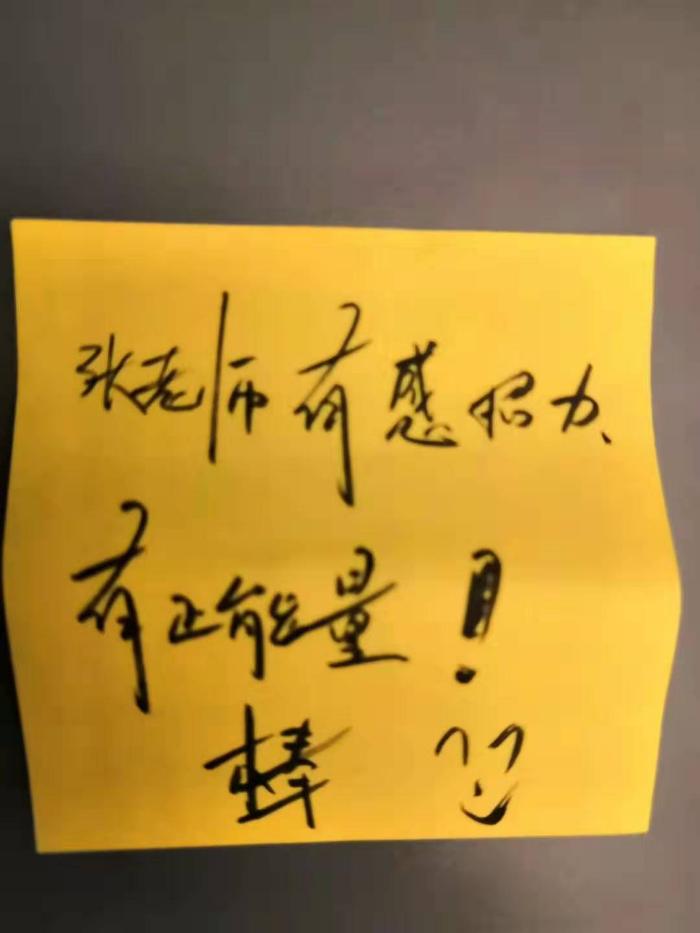 张老师有感招力、
有正能量！
棒